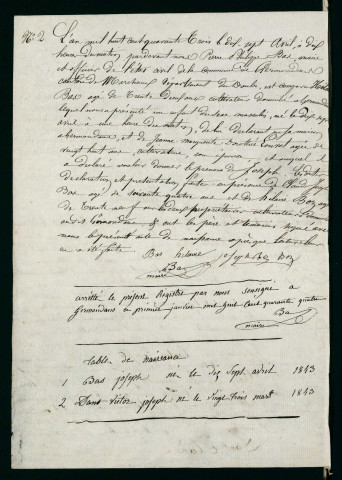 N° 2 L'an mil huit cent quarante trois le dix sept avril à dix
heures du matin, pardevant nous Pierre Philippe Bas, maire
et officier de l'état civil de la commune de Germondans
canton de Marchaux département du Doubs, est comparu
Bas agé de trente cultivateur domicilié à Germondans
lequel nous a présenté un enfant du sexe masculin, né le dix sept
avril à une heure du matin, de lui déclarant
à Germondans, et de Jeanne agée de
vingt huit ans son épouse, et auquel il
a déclaré vouloir donner le prénom de Joseph
déclaration et présentation faite en présence de
Bas agé de soixante quatre ans et de Hilaire Boz agé
de trente neuf ans tous deux propriétaires cultivateurs
audit Germondans & ont les père et témoins signé avec
nous le présent acte de naissance après que lecture leur
en a été faite
Bas hilaire Joseph Bas Boz
Bas
maire
arrêté le présent Registre par nous soussigné à
Germondans ce premier janvier mil huit cent quarante quatre
Bas
maire
table de naissance
1 Bas joseph né le dix sept avril 1843
2 Dans victor joseph né le vingt trois mart 1843